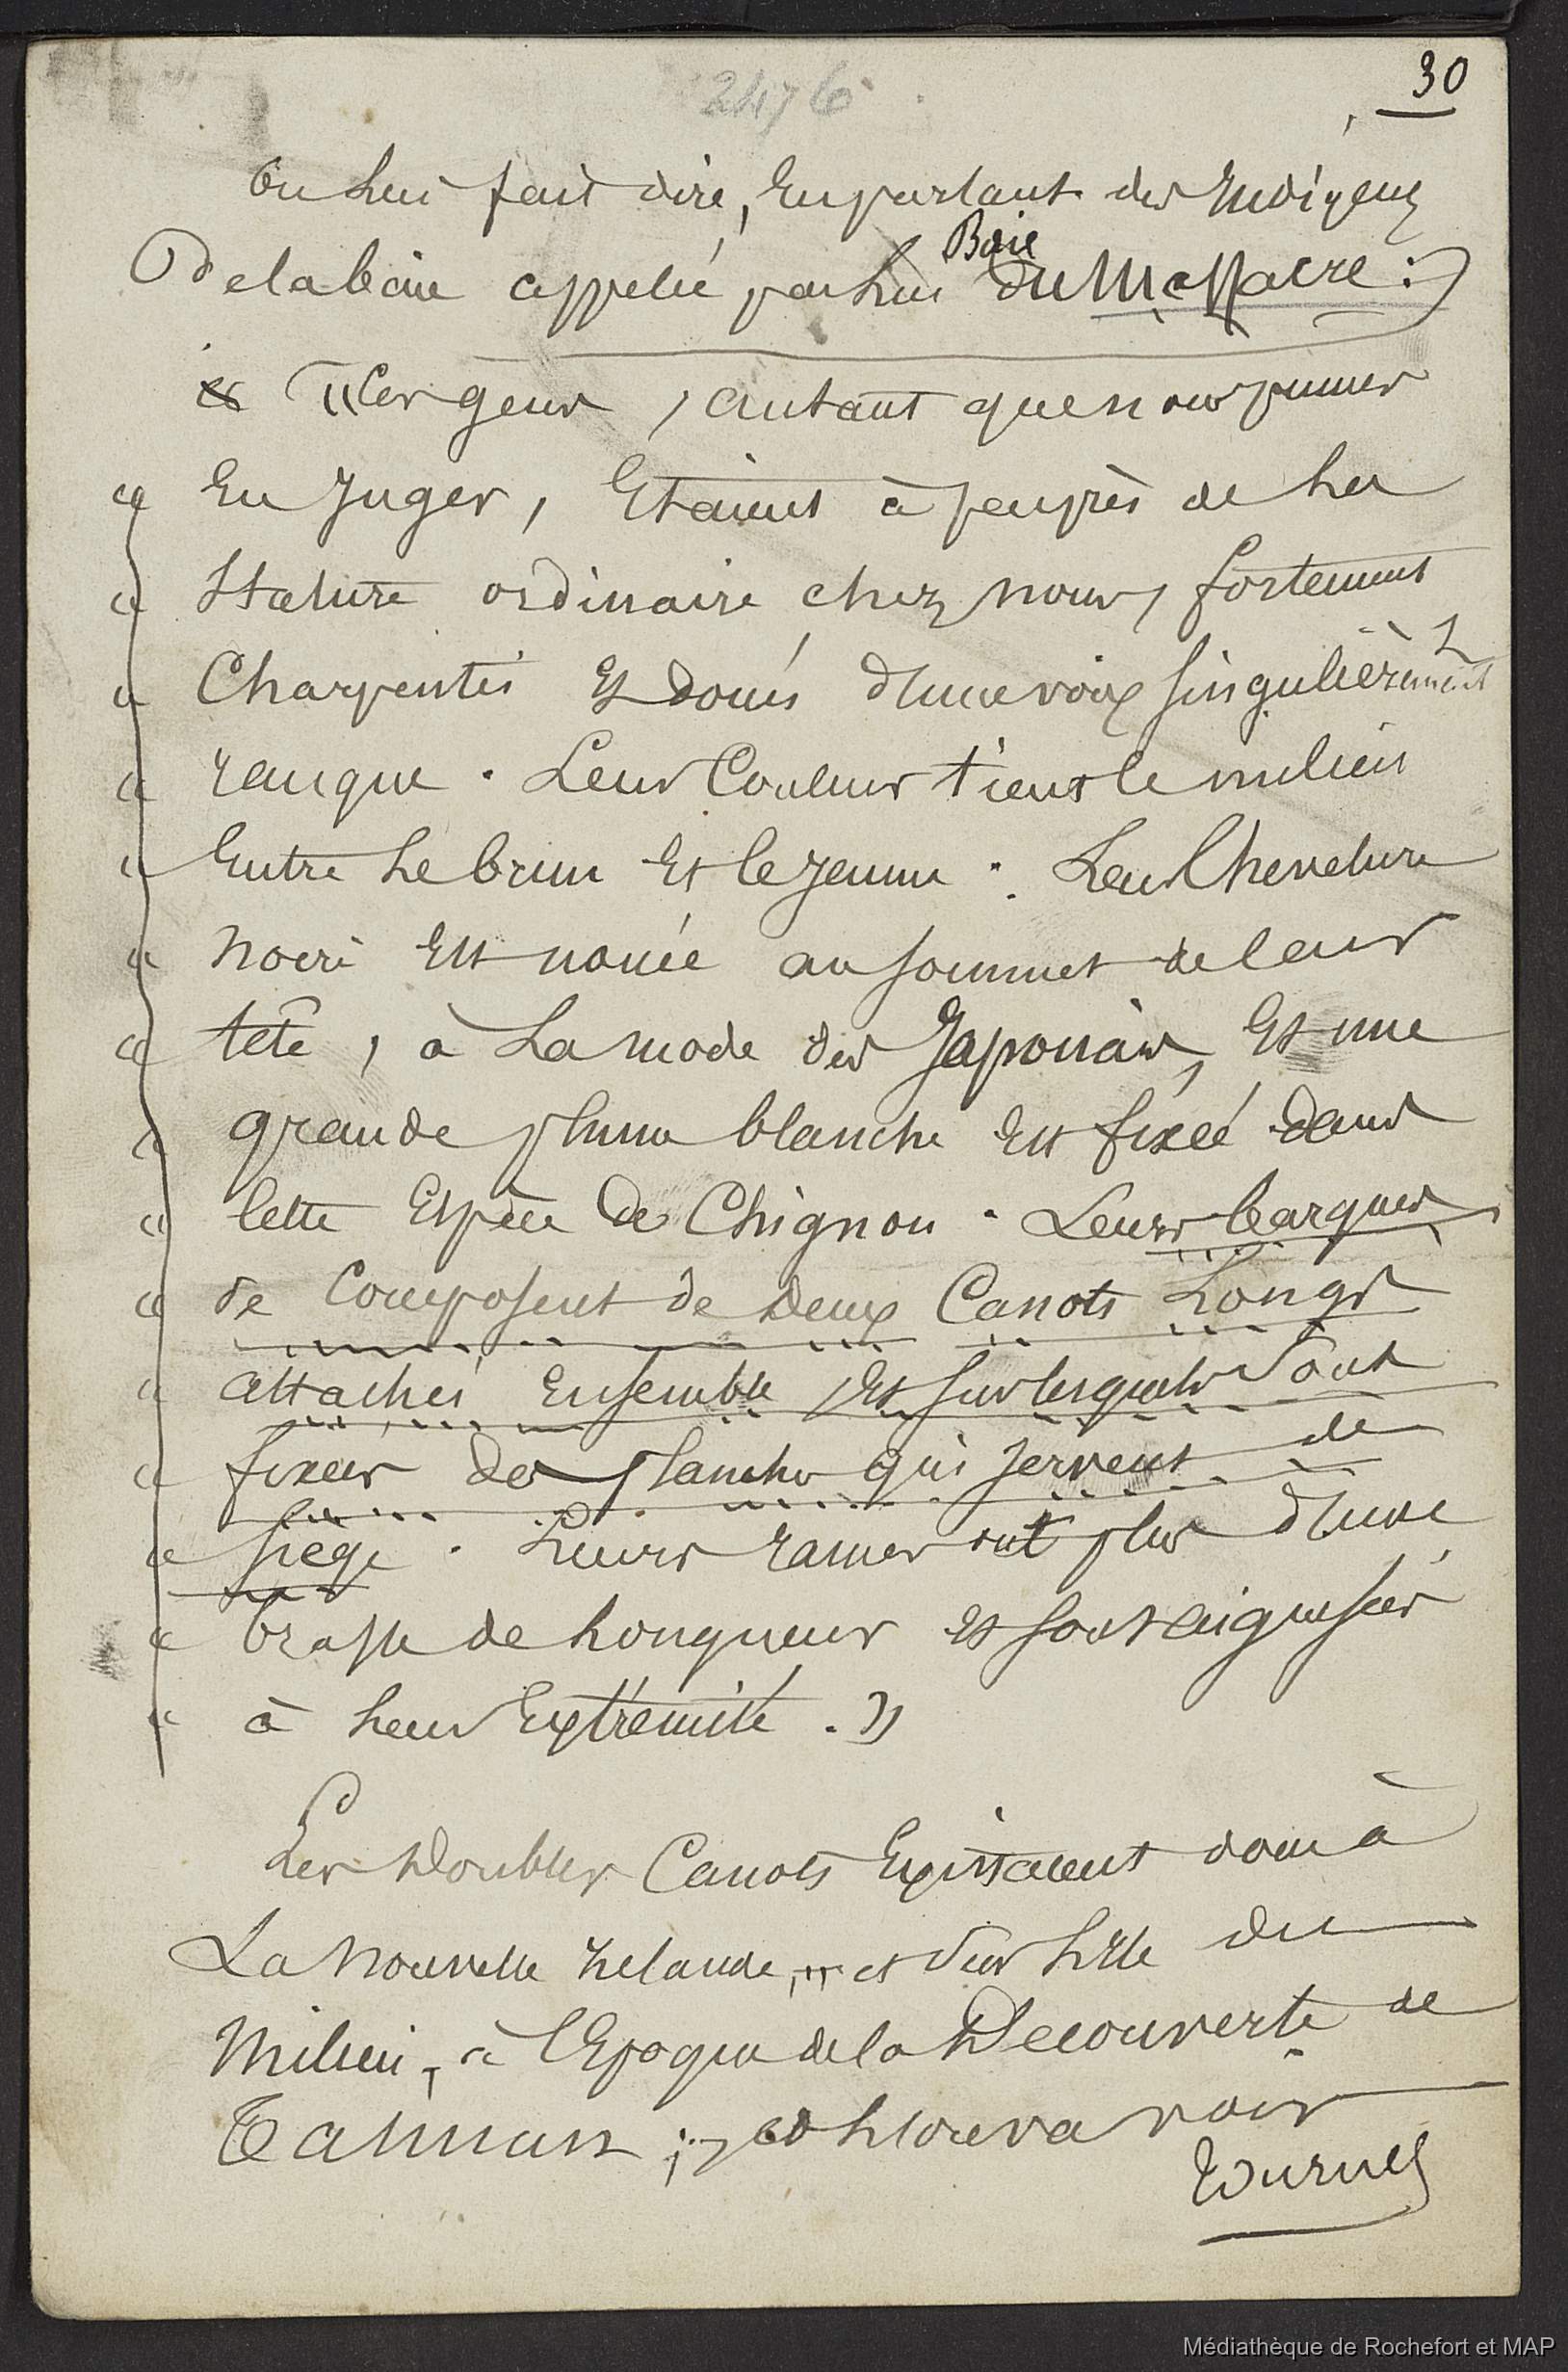 30
2476
On Lui fait dire, En parlant des Indigenes
de la baie appelée par Lui Baie du Massacre :
« Ces gens, autant que nous pumes
« En Juger, Etaient à peu près de La
« Stature ordinaire chez nous, fortement
« Charpentés Et Doués d'une voix singulièrement
« rauque. Leur Couleur tient le milieu
« Entre Le brun Et le Jaune. Leur Chevelure
« noire Est nouée au sommet de leur
« tête, à La mode des Japonais, Et une
« grande plume blanche Est fixée dans
« Cette Espèce De Chignon. Leurs barques
« se Composent de Deux Canots Longs
« attachés Ensemble, Et sur lesquels sont
« fixées des planches qui servent de
« siège. Leurs rames ont plus d'une
« brasse de Longueur et sont aiguisées
« à Leur Extrémité. »
Les Doubles Canots Existaient donc à
La Nouvelle Zelande, et sur L'Ile du
Milieu, à l'Epoque de la Decouverte de
Tasman ;
Tournez
Médiathèque de Rochefort et MAP